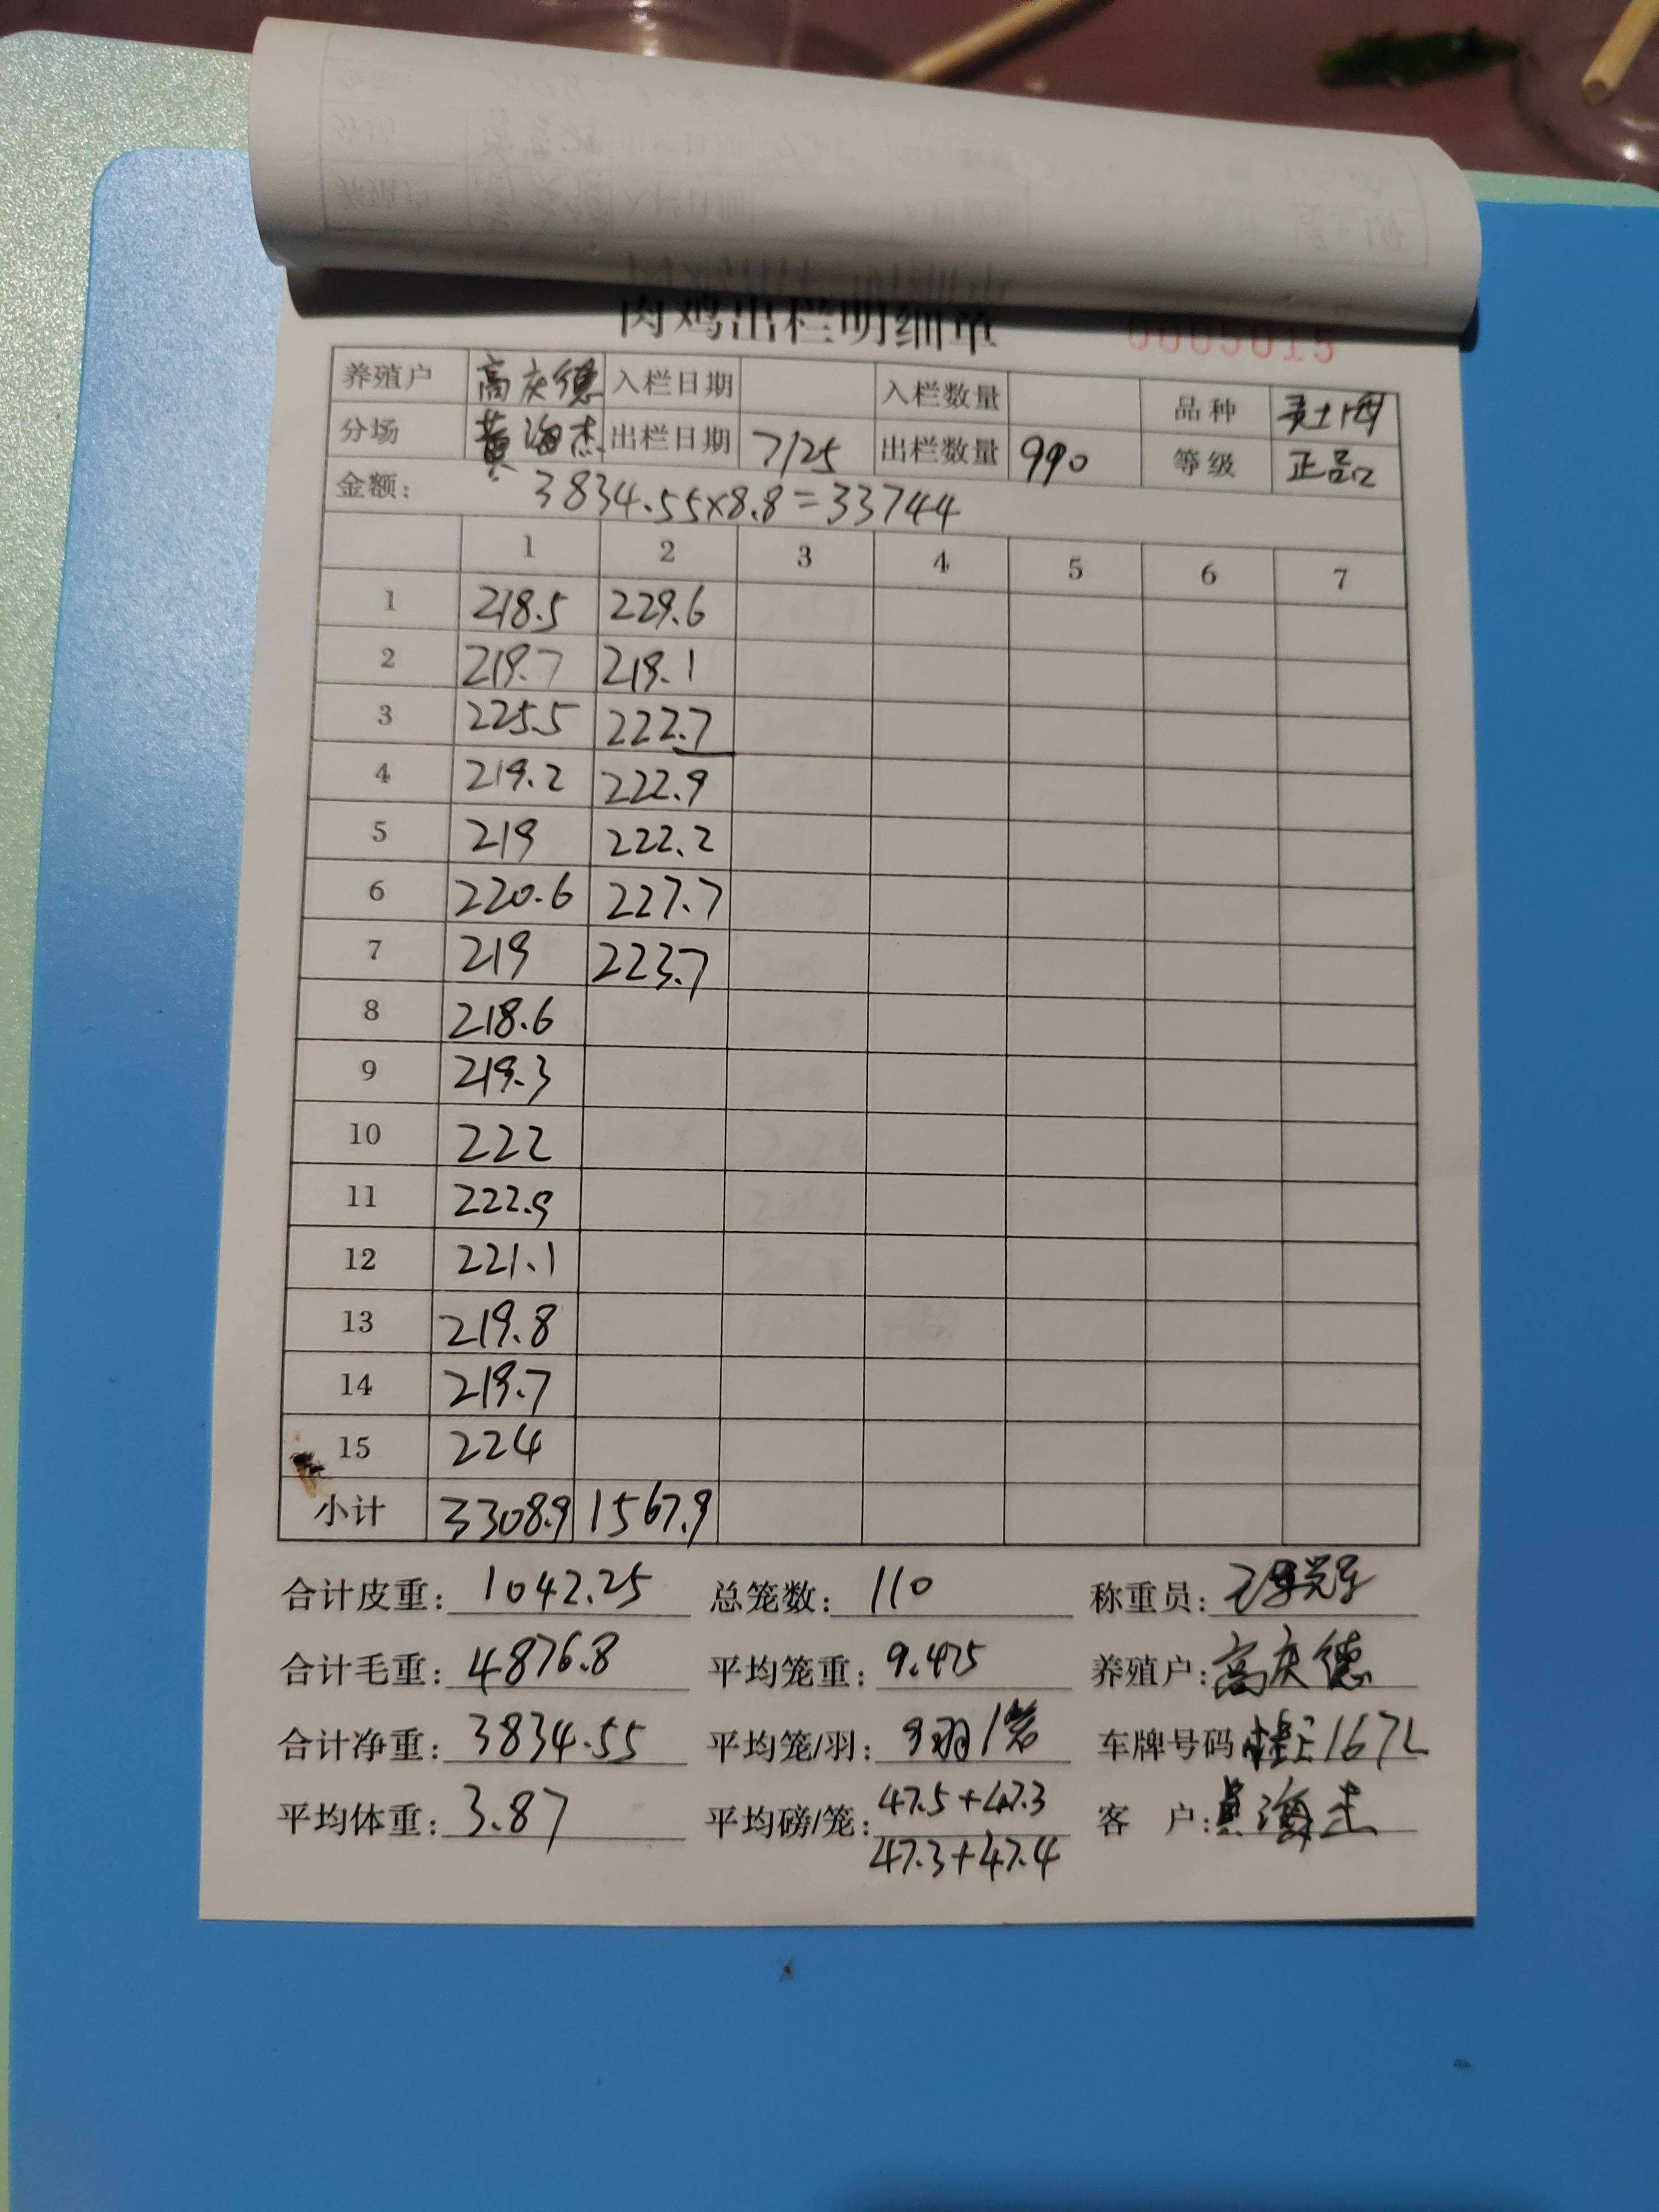 肉鸡出栏明细单
0005015
养殖户 高庆德 入栏日期 入栏数量 品种
分场 黄海杰 出栏日期 7/25 出栏数量 990 等级 正品
金额: 3834.55×8.8=33744
1 2 3 4 5 6 7
1 218.5 229.6
2 219.7 219.1
3 225.5 222.7
4 219.2 222.9
5 219 222.2
6 220.6 227.7
7 219 223.7
8 218.6
9 219.3
10 222
11 222.9
12 221.1
13 219.8
14 219.7
15 224
小计 3308.9 1567.9
合计皮重: 1042.25 总笼数: 110 称重员:
合计毛重: 4876.8 平均笼重: 9.475 养殖户: 高庆德
合计净重: 3834.55 平均笼/羽: 9羽/笼 车牌号码
平均体重: 3.87 平均磅/笼: 47.5+47.3 客 户: 黄海杰
47.3+47.4